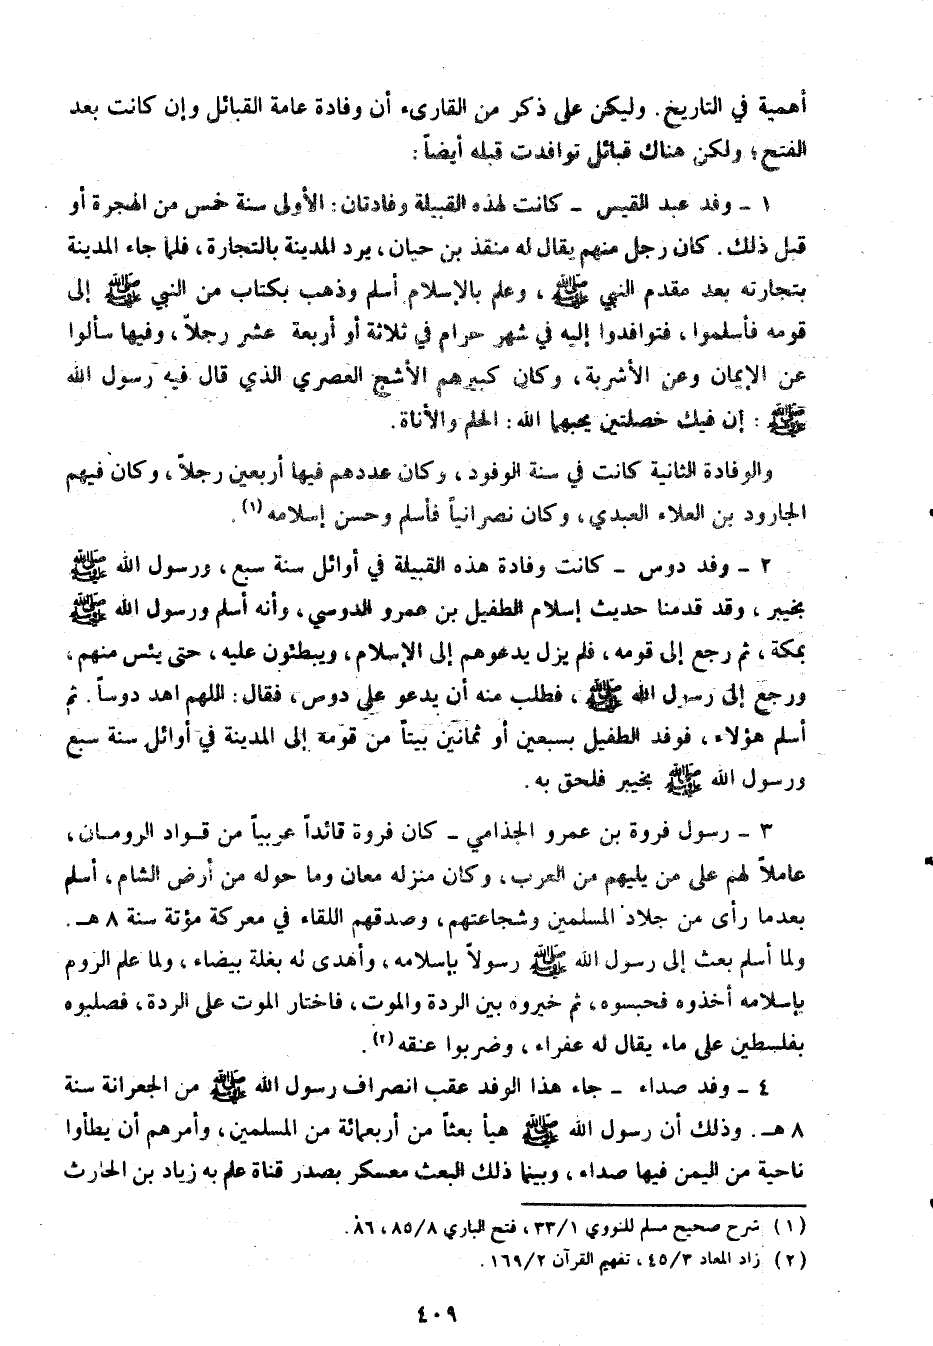 أهمية في التاريخ. وليكن على ذكر من القارىء أن وفادة عامة القبائل وإن كانت بعد
الفتح؛ ولكن هناك قبائل توافدت قبله أيضاً:
١ ـ وفد عبد القيس ـ كانت لهذه القبيلة وفادتان: الأولى سنة خمس من الهجرة أو
قبل ذلك. كان رجل منهم يقال له منقذ بن حيان، يرد المدينة بالتجارة، فلما جاء المدينة
بتجارته بعد مقدم النبي ﷺ، وعلم بالإسلام أسلم وذهب بكتاب من النبي ﷺ إلى
قومه فأسلموا، فتوافدوا إليه في شهر حرام في ثلاثة أو أربعة عشر رجلاً، وفيها سألوا
عن الإيمان وعن الأشربة، وكان كبيرهم الأشج العصري الذي قال فيه رسول الله
ﷺ: إن فيك خصلتين يحبهما الله: الحلم والأناة.
والوفادة الثانية كانت في سنة الوفود، وكان عددهم فيها أربعين رجلاً، وكان فيهم
الجارود بن العلاء العبدي، وكان نصرانياً فأسلم وحسن إسلامه(١).
٢ ـ وفد دوس ـ كانت وفادة هذه القبيلة في أوائل سنة سبع، ورسول الله ﷺ
بخيبر، وقد قدمنا حديث إسلام الطفيل بن عمرو الدوسي، وأنه أسلم ورسول الله ﷺ
بمكة، ثم رجع إلى قومه، فلم يزل يدعوهم إلى الإسلام، ويبطئون عليه، حتى يئس منهم،
ورجع إلى رسول الله ﷺ، فطلب منه أن يدعو على دوس، فقال: اللهم اهد دوساً. ثم
أسلم هؤلاء، فوفد الطفيل بسبعين أو ثمانين بيتاً من قومه إلى المدينة في أوائل سنة سبع
ورسول الله ﷺ بخيبر فلحق به.
٣ ـ رسول فروة بن عمرو الجذامي ـ كان فروة قائداً عربياً من قواد الرومان،
عاملاً لهم على من يليهم من العرب، وكان منزله معان وما حوله من أرض الشام، أسلم
بعدما رأى من جلاد المسلمين وشجاعتهم، وصدقهم اللقاء في معركة مؤتة سنة ٨ هـ.
ولما أسلم بعث إلى رسول الله ﷺ رسولاً بإسلامه، وأهدى له بغلة بيضاء، ولما علم الروم
بإسلامه أخذوه فحبسوه، ثم خيروه بين الردة والموت، فاختار الموت على الردة، فصلبوه
بفلسطين على ماء يقال له عفراء، وضربوا عنقه(٢).
٤ ـ وفد صداء ـ جاء هذا الوفد عقب انصراف رسول الله ﷺ من الجعرانة سنة
٨ هـ. وذلك أن رسول الله ﷺ هيأ بعثاً من أربعمائة من المسلمين، وأمرهم أن يطأوا
ناحية من اليمن فيها صداء، وبينما ذلك البعث معسكر بصدر قناة علم به زياد بن الحارث
(١) شرح صحيح مسلم للنووي ٣٣/١، فتح الباري ٨٥/٨، ٨٦.
(٢) زاد المعاد ٤٥/٣، تفهيم القرآن ١٦٩/٢.
٤٠٩